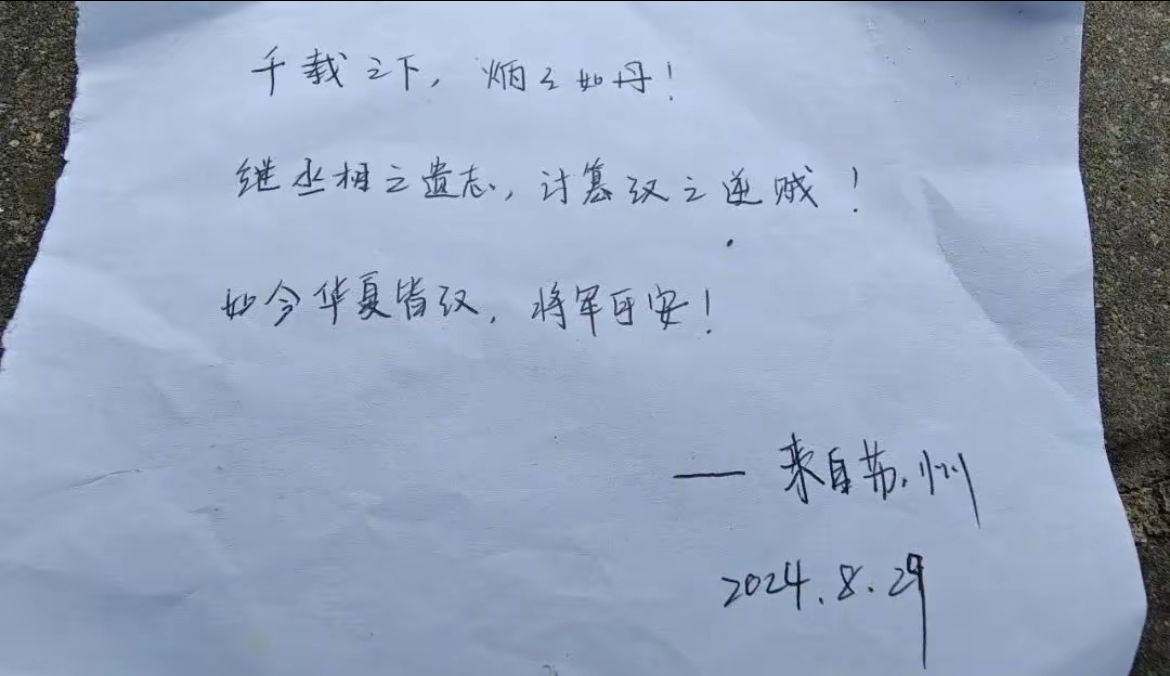 千载之下，炳之如丹！
继丞相之遗志，讨篡汉之逆贼！
如今华夏皆汉，将军可安！
—— 来自苏州
2024.8.29